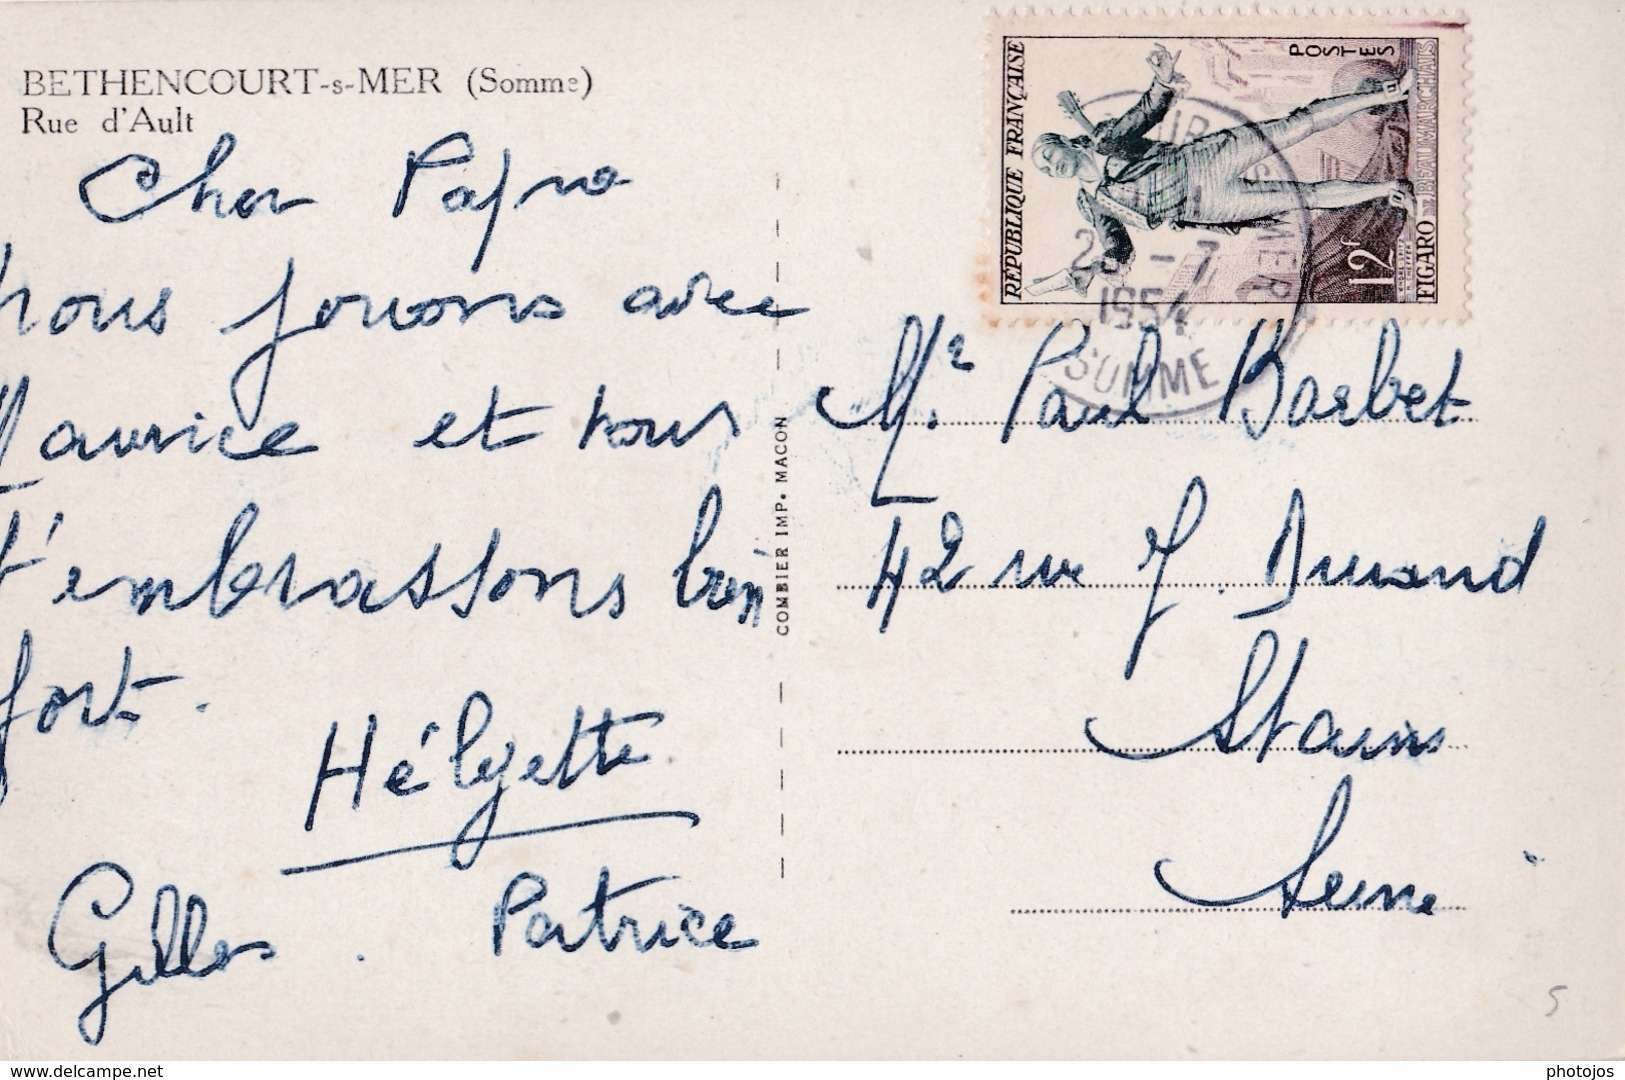 BETHENCOURT-s-MER (Somme)
Rue d'Ault
Cher Papa
nous jouons avec
Maurice et nous
t'embrassons bien
fort.
Hélyette
Gilles. Patrice
COMBIER IMP. MACON
RÉPUBLIQUE FRANÇAISE
POSTES
12f
FIGARO DE BEAUMARCHAIS
-7
1954
SOMME
Mr. Paul Barbet
42 rue J. Durand
Stains
Seine
5
delcampe.net
photojos